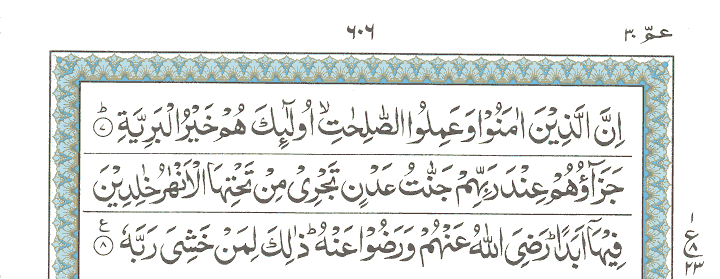 عمّ ٣٠ ٦٠٦
اِنَّ الَّذِيْنَ اٰمَنُوْا وَعَمِلُوا الصّٰلِحٰتِ ۙ اُولٰٓئِكَ هُمْ خَيْرُ الْبَرِيَّةِ ؕ ﴿۷﴾
جَزَآؤُهُمْ عِنْدَ رَبِّهِمْ جَنّٰتُ عَدْنٍ تَجْرِىْ مِنْ تَحْتِهَا الْاَنْهٰرُ خٰلِدِيْنَ
فِيْهَآ اَبَدًا ؕ رَضِىَ اللّٰهُ عَنْهُمْ وَرَضُوْا عَنْهُ ؕ ذٰلِكَ لِمَنْ خَشِىَ رَبَّهٗ ﴿۸﴾ ع
١
ع
٨
٢٣